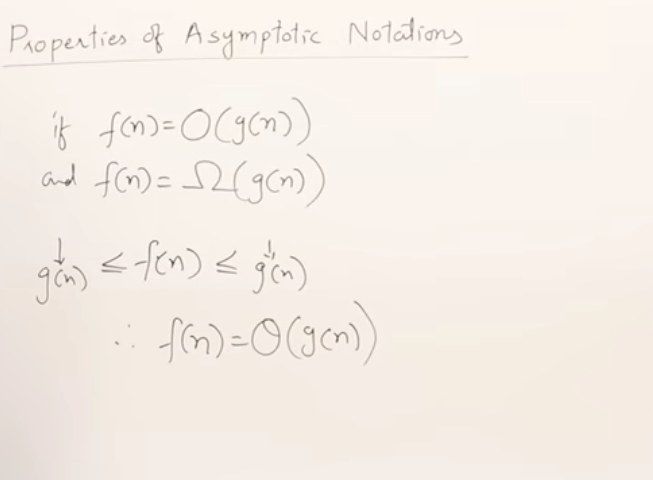 Properties of Asymptotic Notations
if f(n)=O(g(n))
and f(n)=Ω(g(n))
g(n) ≤ f(n) ≤ g(n)
∴ f(n)=Θ(g(n))